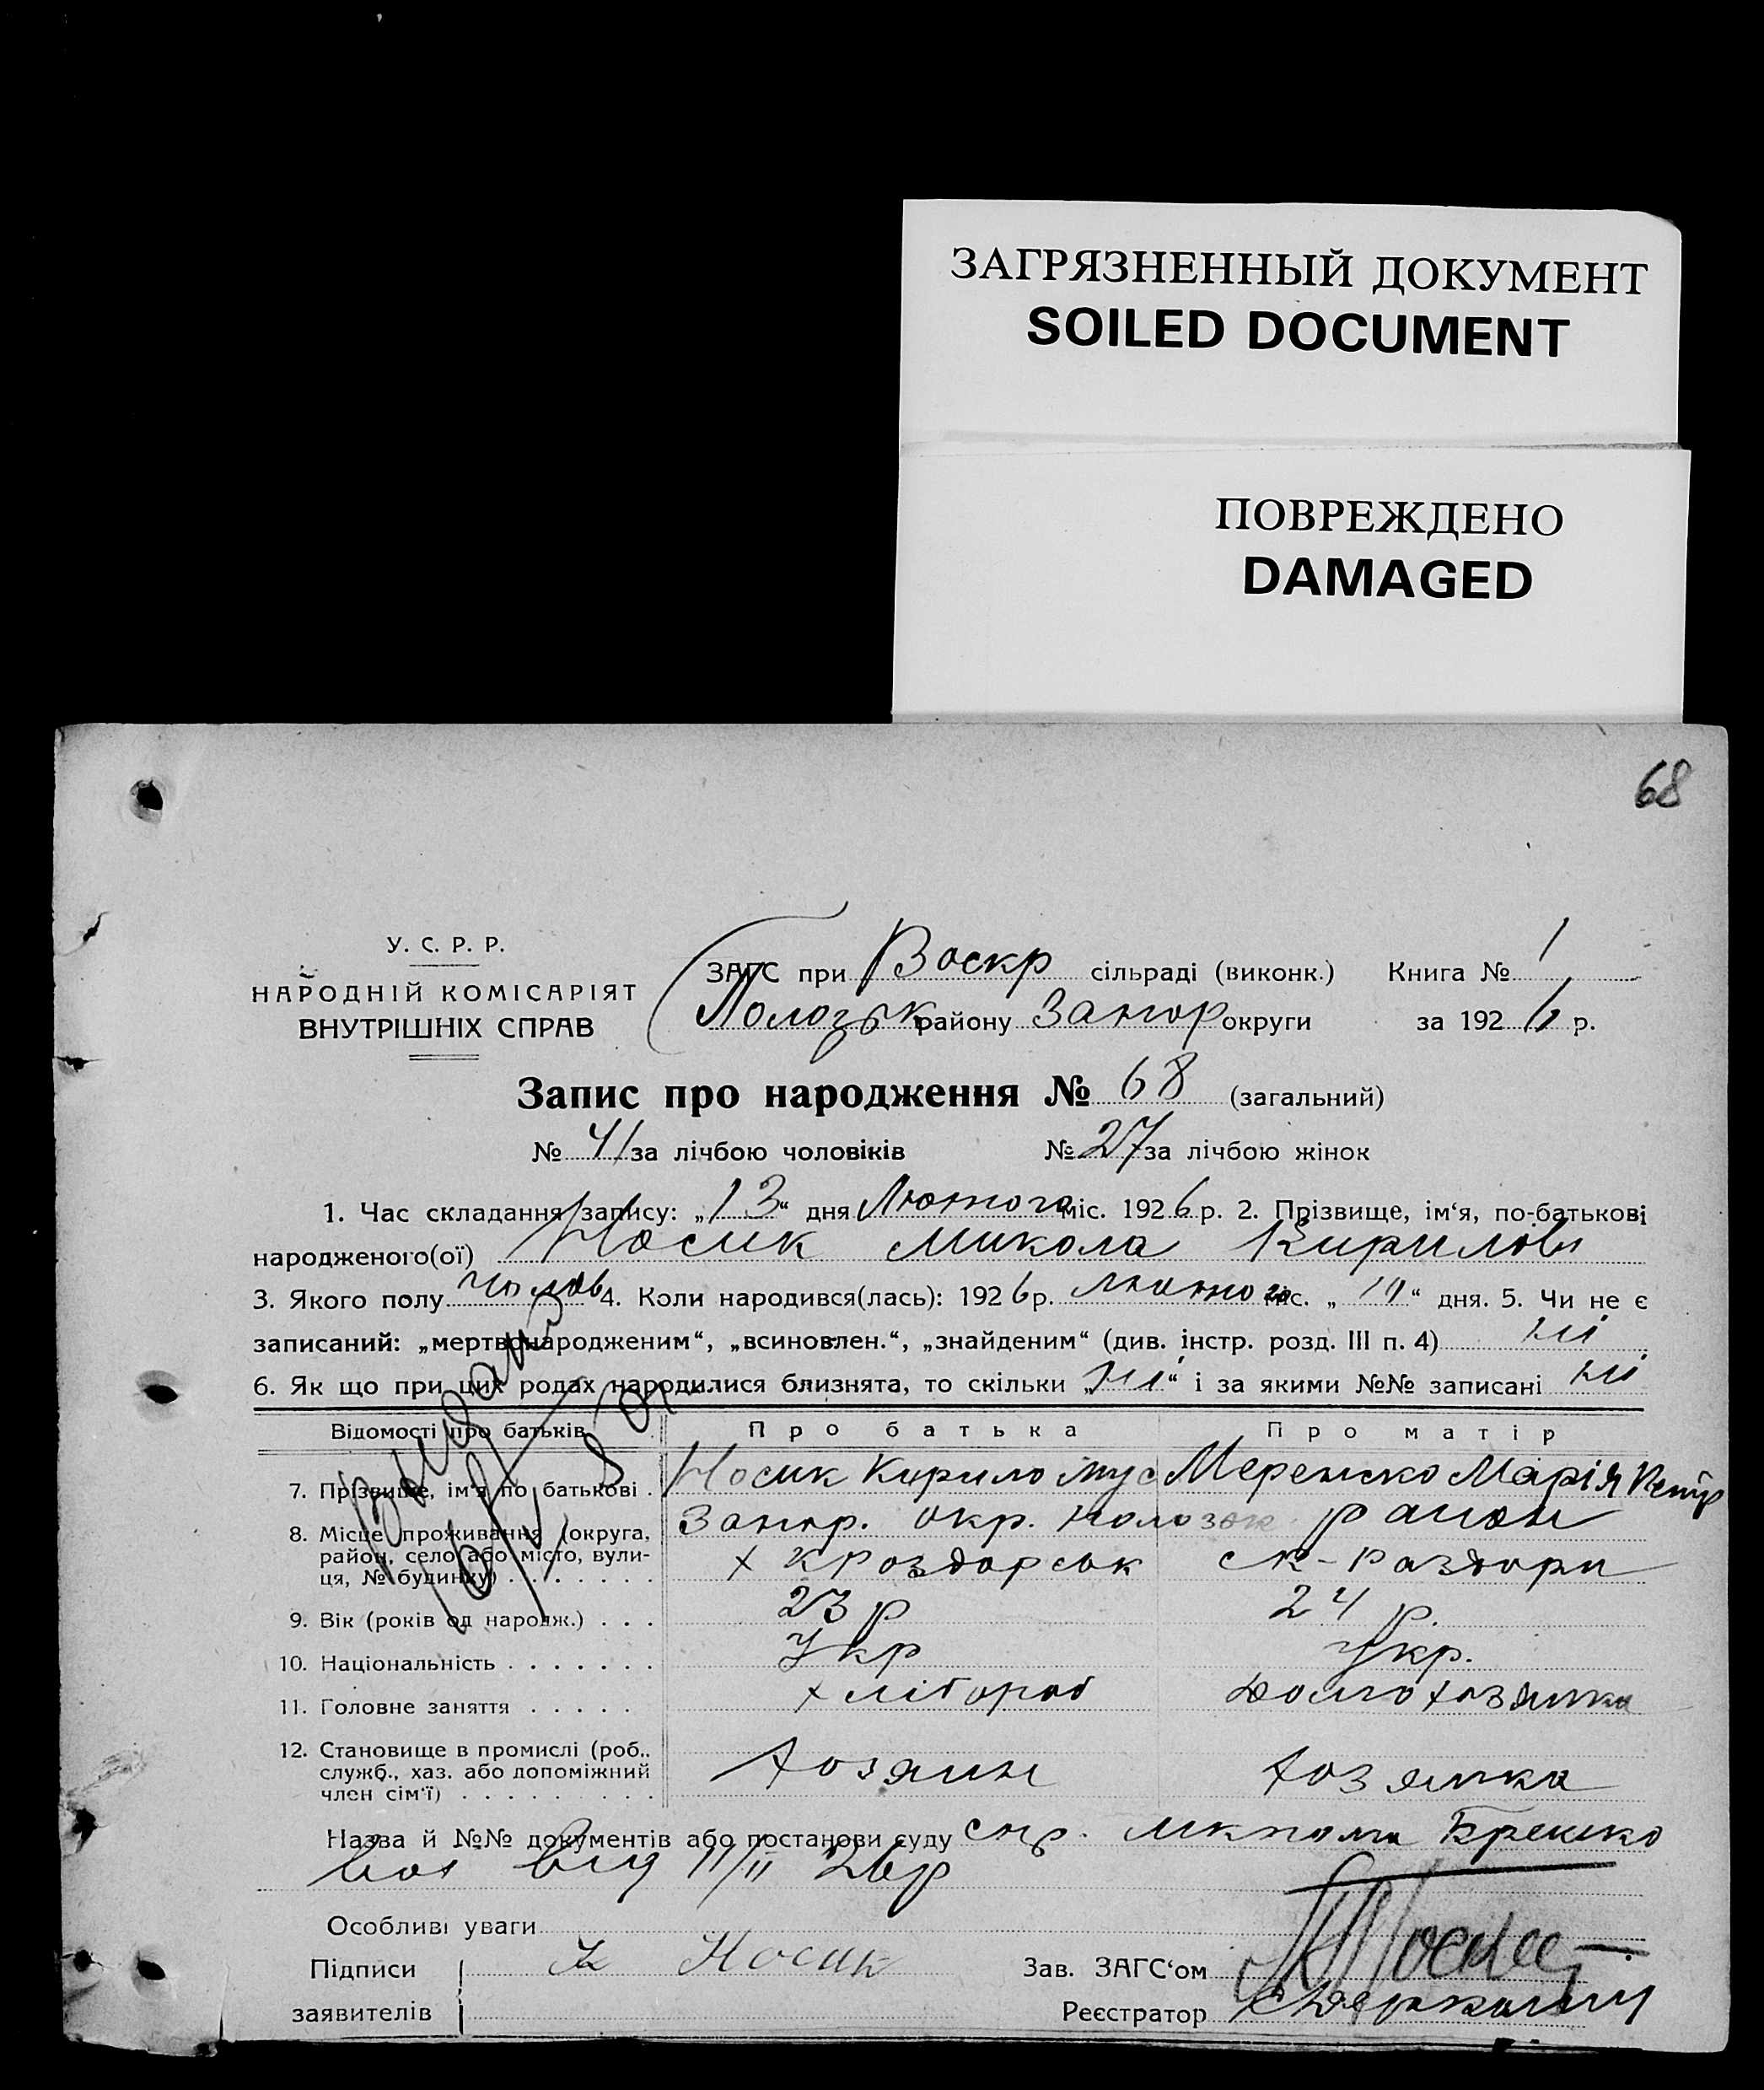 ЗАГРЯЗНЕННЫЙ ДОКУМЕНТ
SOILED DOCUMENT
ПОВРЕЖДЕНО
DAMAGED
68
У. С. Р. Р.
НАРОДНІЙ КОМІСАРІЯТ
ВНУТРІШНІХ СПРАВ
ЗАГС при Воскр сільраді (виконк.) Книга № 1
Пологськ району Запор округи за 192 6 р.
Запис про народження № 68 (загальний)
№ 41 за лічбою чоловіків № 27 за лічбою жінок
1. Час складання запису: „13“ дня Лютого міс. 1926 р. 2. Прізвище, ім‘я, по-батькові
народженого(ої) Носик Микола Кирилов
3. Якого полу чолов 4. Коли народився(лась): 1926 р. лютого міс. „ “ дня. 5. Чи не є
записаний: „мертвонародженим“, „всиновлен.“, „знайденим“ (див. інстр. розд. III п. 4) ні
6. Як що при цих родах народилися близнята, то скільки „ні“ і за якими №№ записані ні
Відомості про батьків Про батька Про матір
7. Прізвище, ім‘я по батькові . Носик Кирило Марія Петр
8. Місце проживання (округа, район, село або місто, вулиця, № будинку) Запор. окр. район
9. Вік (років од народж.) . . . 23 р 24 р.
10. Національність . . . . . . . Укр Укр.
11. Головне заняття . . . . . хлібороб домохозяйка
12. Становище в промислі (роб.,
служб., хаз. або допоміжний
член сім‘ї) . . . . . . . . . хозяин хозяйка
Назва й №№ документів або постанови суду
від 11/II 26р
Особливі уваги
Підписи К Носик Зав. ЗАГС‘ом
заявителів Реєстратор